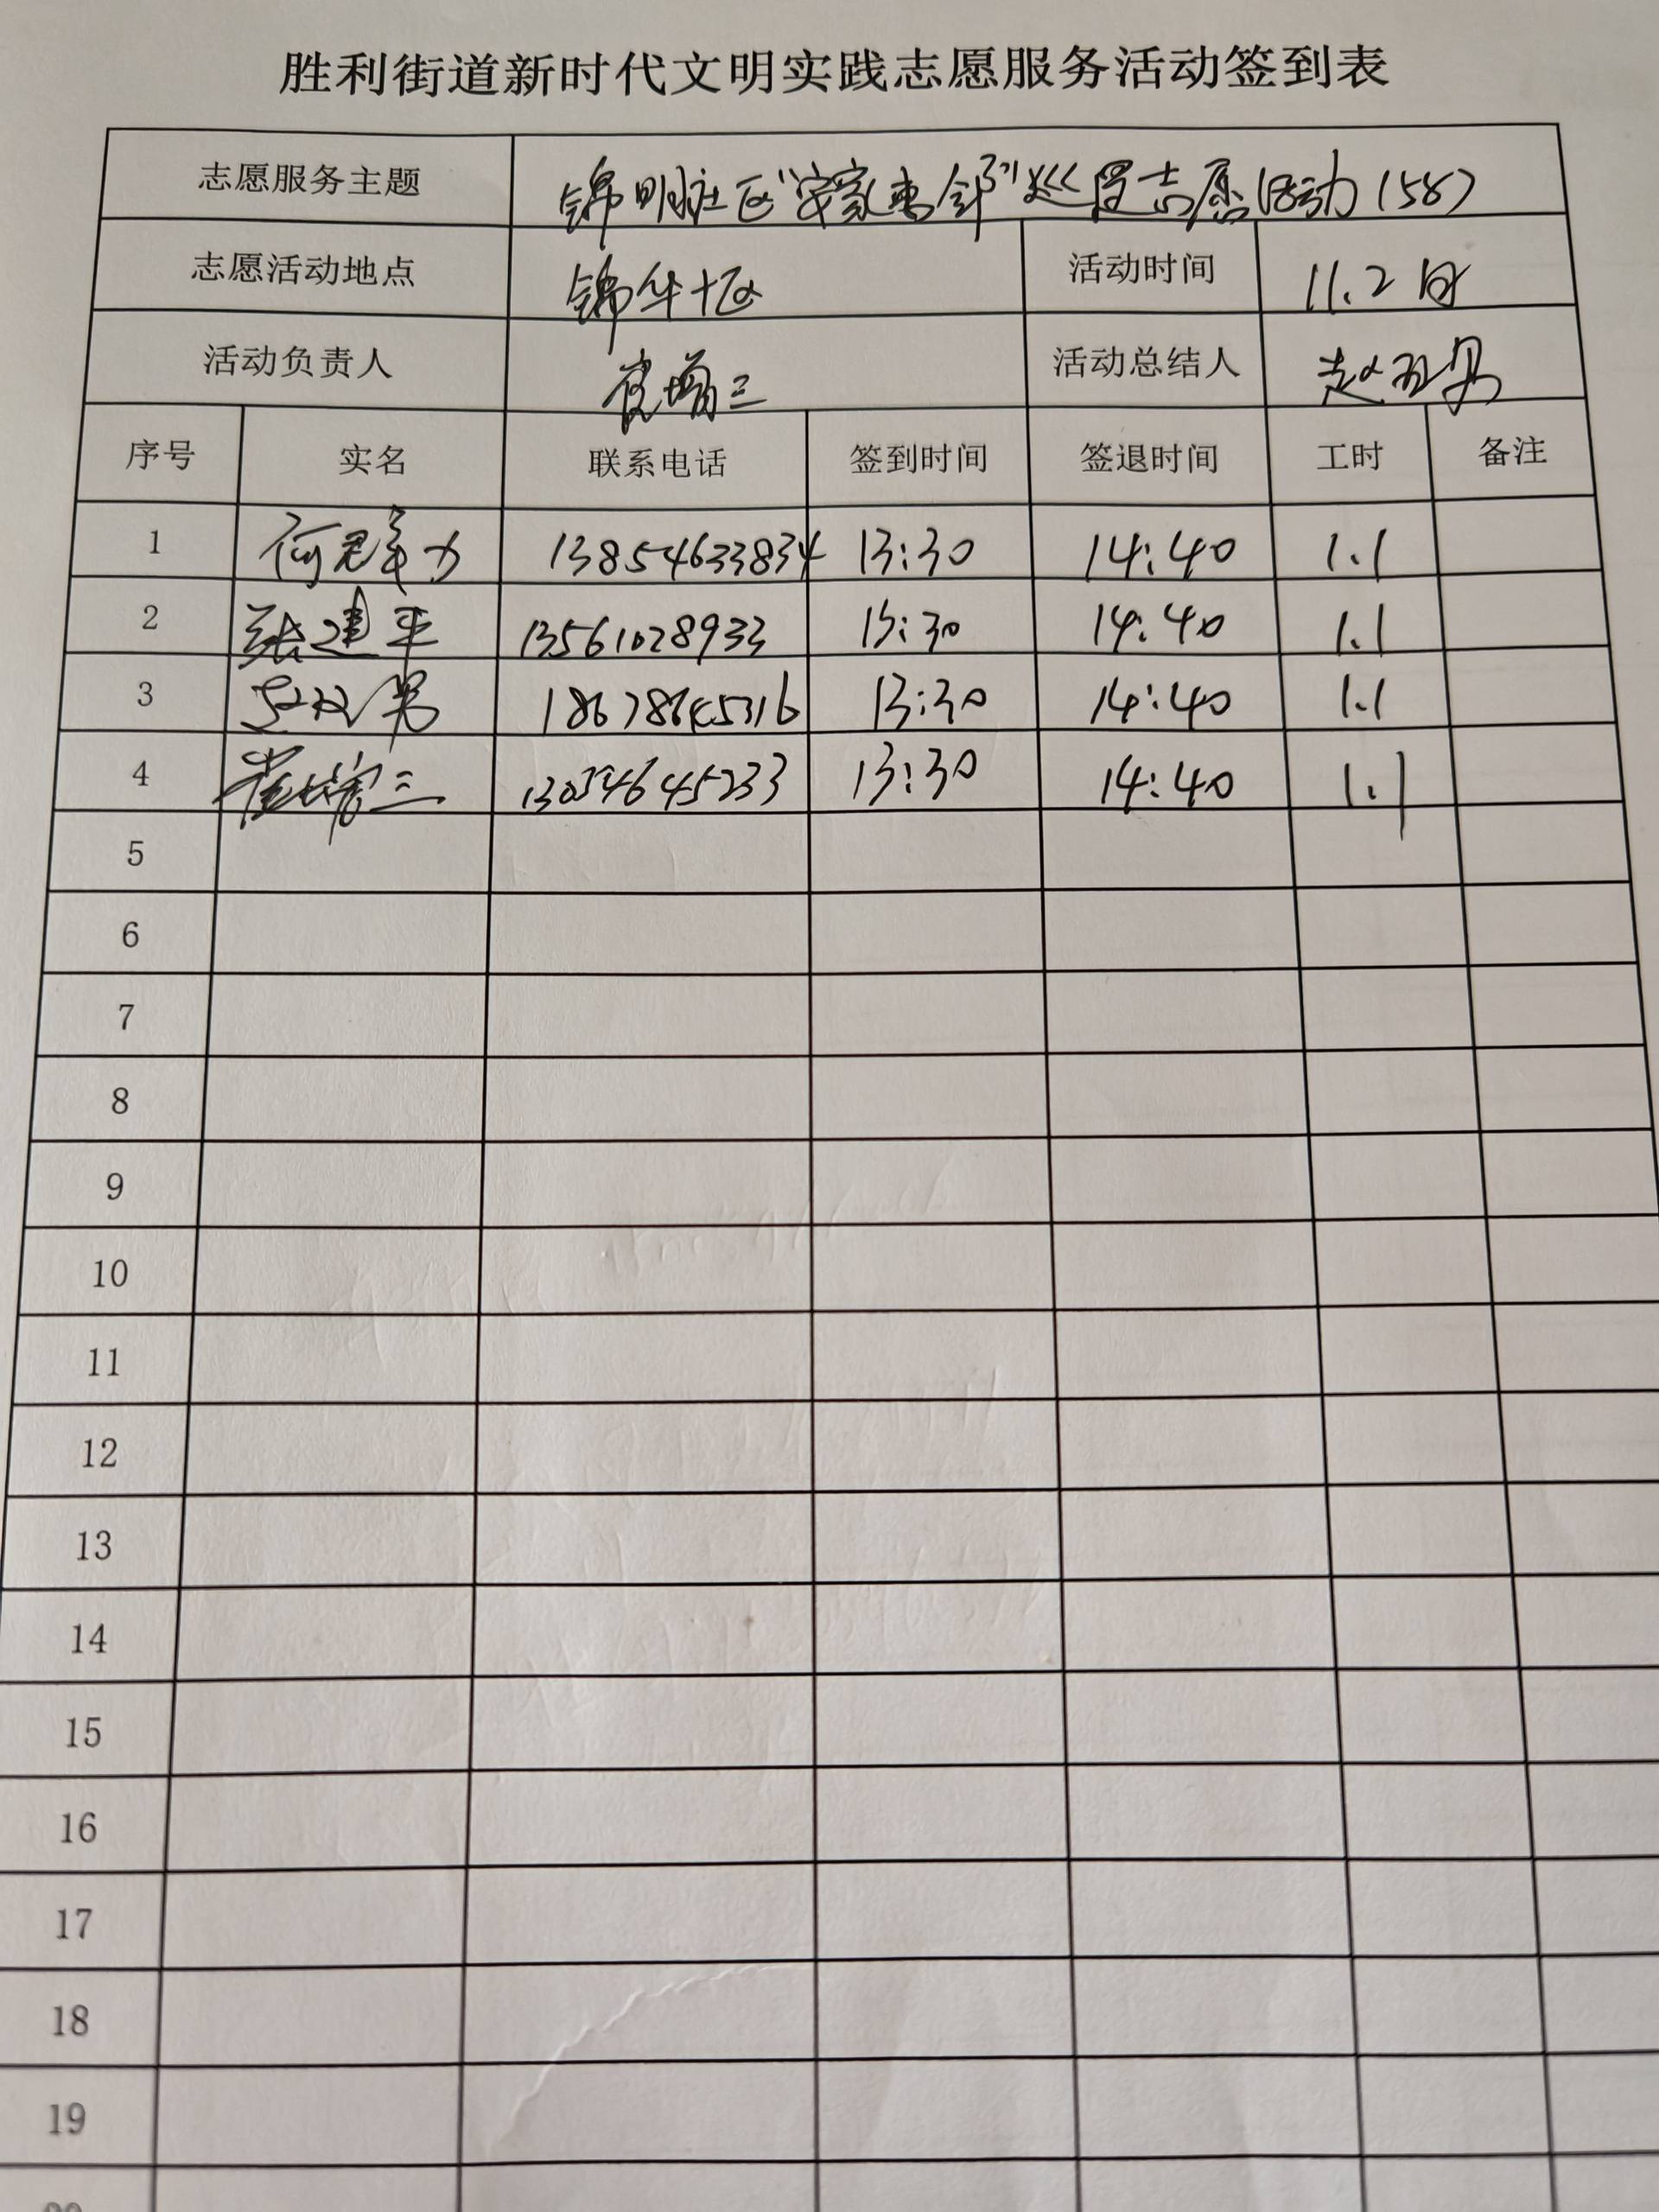 胜利街道新时代文明实践志愿服务活动签到表
志愿服务主题 锦明社区"安家惠邻"巡逻志愿活动(58)
志愿活动地点 锦华十区 活动时间 11.2日
活动负责人 崔增三 活动总结人 赵双男
序号 实名 联系电话 签到时间 签退时间 工时 备注
1 13854633834 13:30 14:40 1.1
2 张建平 13561028933 13:30 14:40 1.1
3 赵双男 18678645316 13:30 14:40 1.1
4 崔增三 13054645233 13:30 14:40 1.1
5
6
7
8
9
10
11
12
13
14
15
16
17
18
19